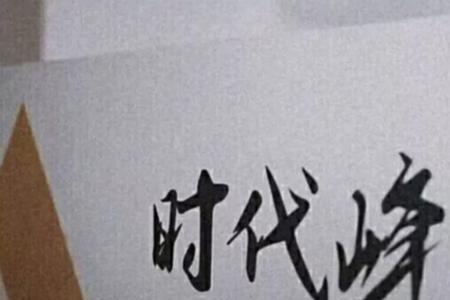 时代峰